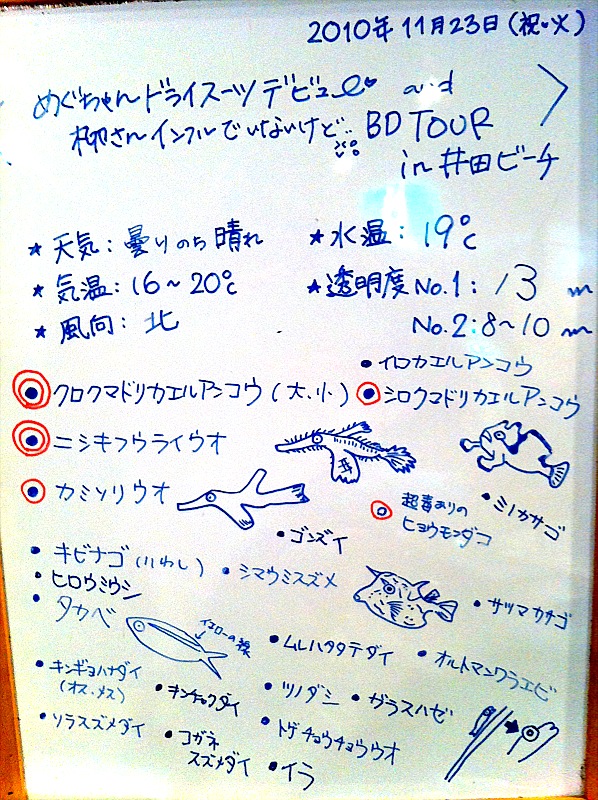 2010年 11月23日(祝・火)
めぐちゃんドライスーツデビュー♥ and
柳さんインフルでいないけど… BD TOUR
in 井田ビーチ
★ 天気：曇りのち晴れ
★ 水温：19℃
★ 気温：16〜20℃
★ 透明度 No.1：13m
★ 風向：北
No.2：8〜10m
• イロカエルアンコウ
• クロクマドリカエルアンコウ(大、小)
• シロクマドリカエルアンコウ
• ニシキフウライウオ
• カミソリウオ
• ミノカサゴ
• 超毒ありの
ヒョウモンダコ
• ゴンズイ
• キビナゴ(いわし)
• シマウミスズメ
• ヒロウミウシ
• サツマカサゴ
• タカベ
イエローの線
• ムレハタタテダイ
• オルトマンワラエビ
• キンギョハナダイ
(オス、メス)
• キンチャクダイ
• ツノダシ
• ガラスハゼ
• ソラスズメダイ
• コガネ
スズメダイ
• トゲチョウチョウウオ
• イラ